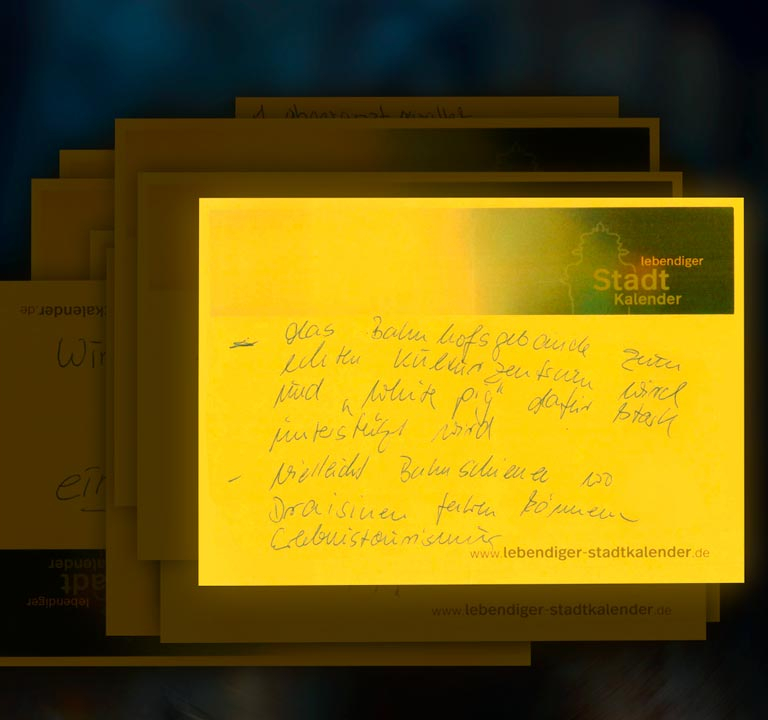 lebendiger
Stadt
Kalender
- das Bahnhofsgebäude zum
echten Kulturzentrum wird
und „White pig" dafür stark
unterstützt wird
- vielleicht Bahnschienen wo
Draisinen fahren können
Erlebnistourismus
www.lebendiger-stadtkalender.de
www.lebendiger-stadtkalender.de
kalender.de
Wir
ein
Stadt
lebendiger
Kalender